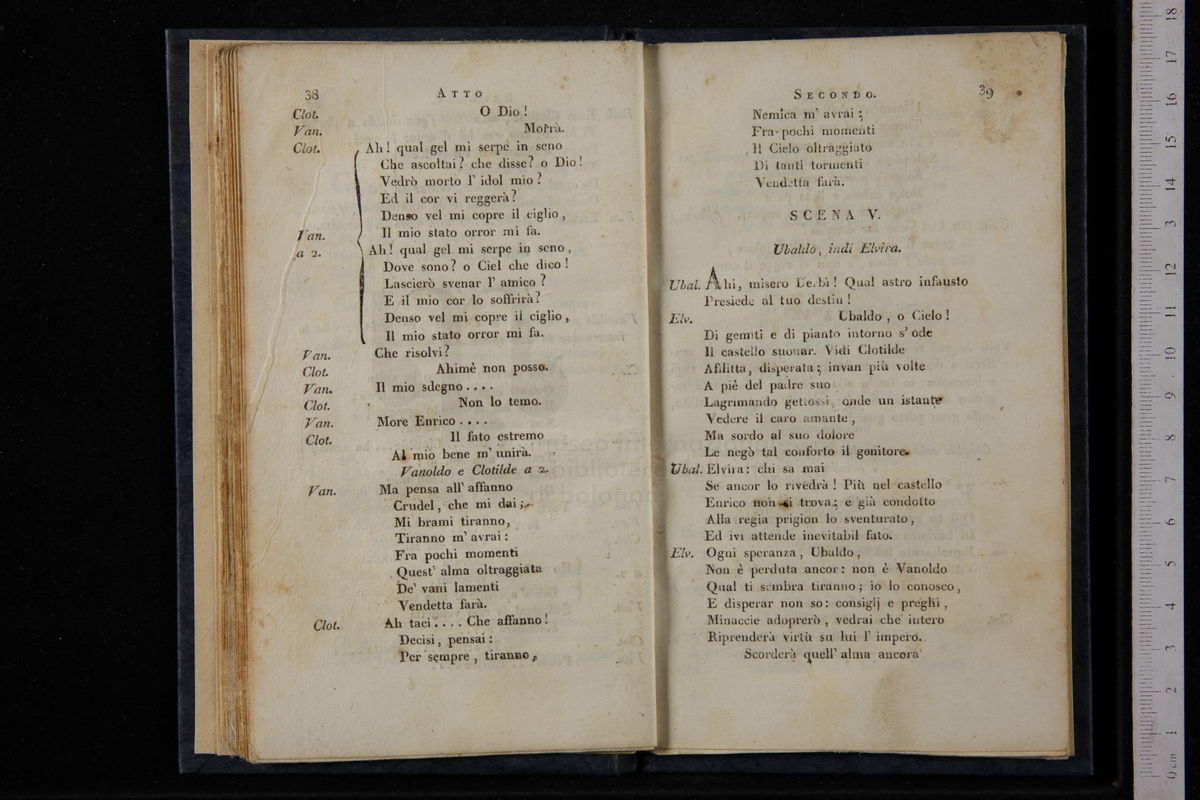 38 ATTO
Clot. O Dio!
Van. Morrà.
Clot. Ah! qual gel mi serpe in seno
Che ascoltai? che disse? o Dio!
Vedrò morto l' idol mio?
Ed il cor vi reggerà?
Denso vel mi copre il ciglio,
Il mio stato orror mi fa.
Van. a 2. Ah! qual gel mi serpe in seno,
Dove sono? o Ciel che dico!
Lascierò svenar l' amico?
E il mio cor lo soffrirà?
Denso vel mi copre il ciglio,
Il mio stato orror mi fa.
Van. Che risolvi?
Clot. Ahimè non posso.
Van. Il mio sdegno....
Clot. Non lo temo.
Van. More Enrico....
Clot. Il fato estremo
Al mio bene m' unirà.
Vanoldo e Clotilde a 2.
Van. Ma pensa all' affanno
Crudel, che mi dai;
Mi brami tiranno,
Tiranno m' avrai:
Fra pochi momenti
Quest' alma oltraggiata
De' vani lamenti
Vendetta farà.
Clot. Ah taci.... Che affanno!
Decisi, pensai:
Per sempre, tiranno,
SECONDO. 39
Nemica m' avrai;
Fra pochi momenti
Il Cielo oltraggiato
Di tanti tormenti
Vendetta farà.
SCENA V.
Ubaldo, indi Elvira.
Ubal. Ahi, misero Derbì! Qual astro infausto
Presiede al tuo destin!
Elv. Ubaldo, o Cielo!
Di gemiti e di pianto intorno s' ode
Il castello suonar. Vidi Clotilde
Afflitta, disperata; invan più volte
A piè del padre suo
Lagrimando gettossi, onde un istante
Vedere il caro amante,
Ma sordo al suo dolore
Le negò tal conforto il genitore.
Ubal. Elvira: chi sa mai
Se ancor lo rivedrà! Più nel castello
Enrico non si trova; e già condotto
Alla regia prigion lo sventurato,
Ed ivi attende inevitabil fato.
Elv. Ogni speranza, Ubaldo,
Non è perduta ancor: non è Vanoldo
Qual ti sembra tiranno; io lo conosco,
E disperar non so: consiglj e preghi,
Minaccie adoprerò, vedrai che intero
Riprenderà virtù su lui l' impero.
Scorderà quell' alma ancora
0 cm 1 2 3 4 5 6 7 8 9 10 11 12 13 14 15 16 17 18